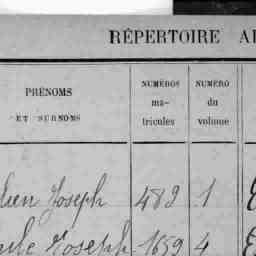 RÉPERTOIRE
PRÉNOMS
ET SURNOMS
NUMÉROS
ma-
tricules
NUMÉRO
du
volume
Joseph 482 1
Joseph 1659 4